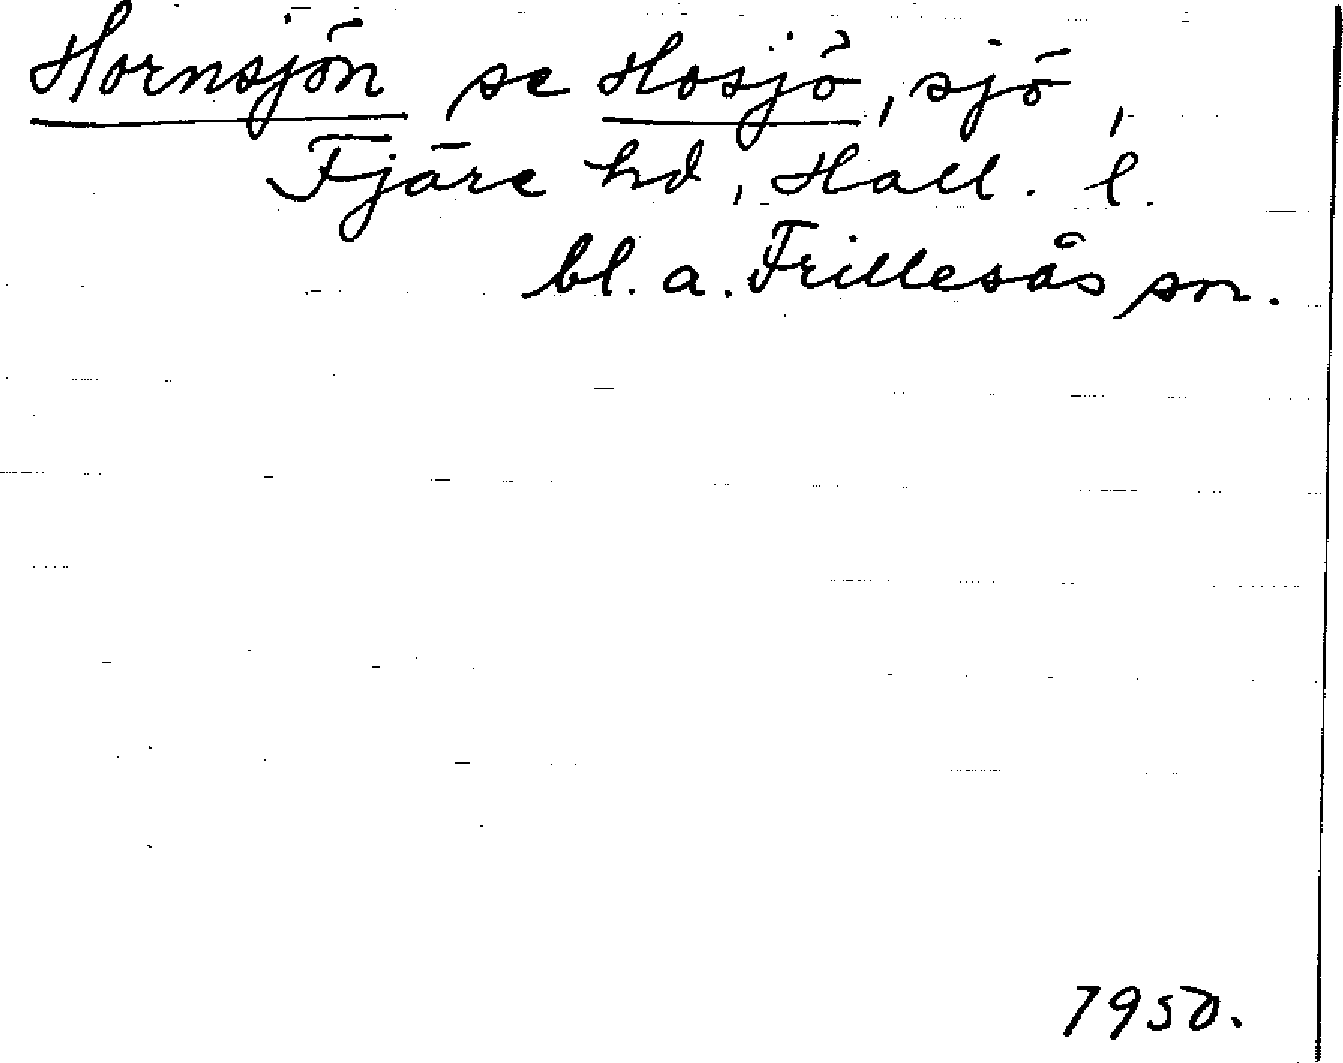 Hornsjön se Hosjö, sjö,
Fjäre hd, Hall. l.
bl. a. Frillesås sn.
1950.